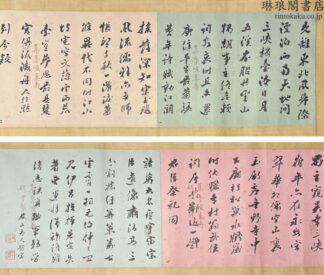 琳琅閣書店
rinrokaku.co.jp
支離東北風塵際
漂泊西南天地間
三峽樓臺淹日月
五溪衣服共雲山
羯胡事主終無賴
詞客哀時且未還
庾信平生最蕭瑟
暮年詩賦動江關
搖落深知宋玉悲
風流儒雅亦吾師
悵望千秋一灑淚蕭
條異代不同時江山
故宅空文藻雲雨荒
臺豈夢思最是楚
宮俱泯滅舟人指點
到今疑
蜀主窺吳幸三峽
崩年亦在永安宮
翠華想像空山裏
玉殿虛無野寺中
古廟杉松巢水鶴歲
時伏臘走村翁武侯
祠屋長鄰近一體
君臣祭祀同
諸葛大名垂宇宙宗
臣遺像肅清高三
分割據紆籌策萬
古雲霄一羽毛伯仲之間
見伊呂指揮若定失
蕭曹運移漢祚終難
復志決身殲軍務勞